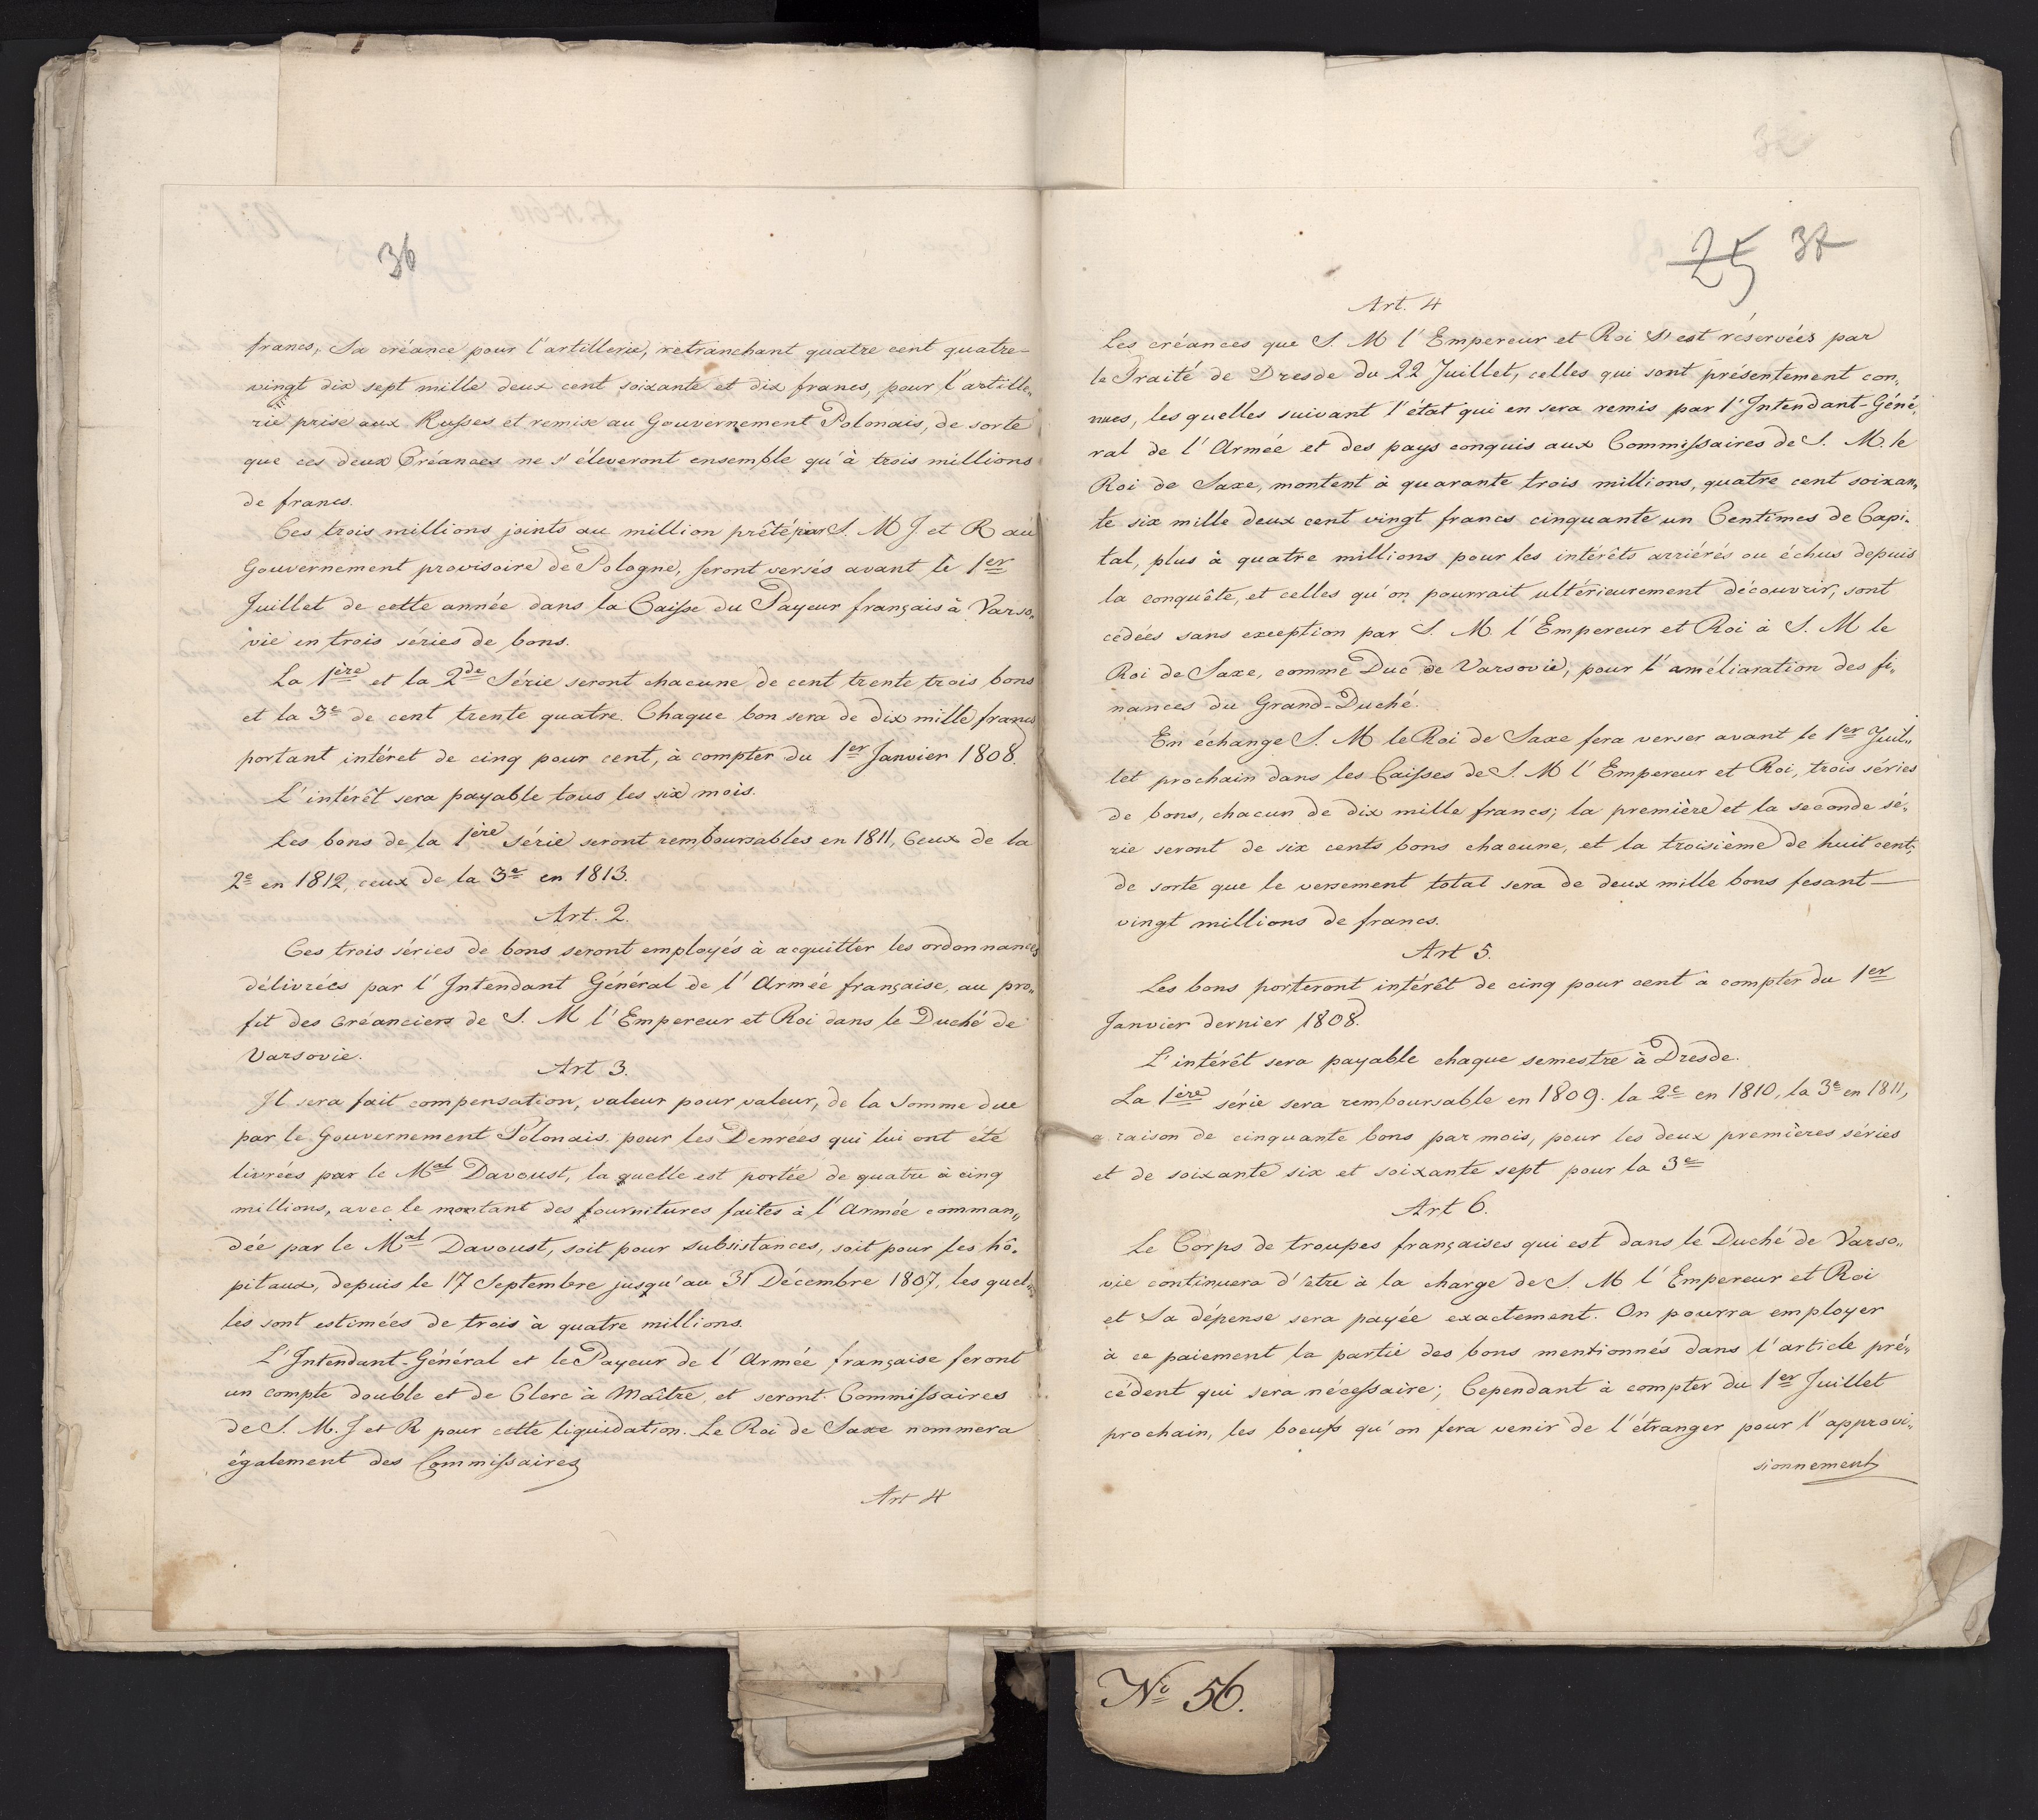 36
francs, Sa créance pour l'artillerie, retranchant quatre cent quatre-
vingt dix sept mille deux cent soixante et dix francs, pour l'artille„
rie prise aux Russes et remise au Gouvernement Polonais, de sorte
que ces deux Créances ne s'éleveront ensemble qu'à trois millions
de francs.
Ces trois millions joints au million prêté par S. M J. et R au
Gouvernement provisoire de Pologne, seront versés avant le 1er
Juillet de cette année dans la Caisse du Payeur français à Varso„
vie en trois séries de bons.
La 1ère et la 2de Série seront chacune de cent trente trois bons
et la 3e de cent trente quatre. Chaque bon sera de dix mille francs
portant intéret de cinq pour cent, à compter du 1er Janvier 1808.
L'intérêt sera payable tous les six mois.
Les bons de la 1ère Série seront remboursables en 1811, Ceux de la
2e en 1812, ceux de la 3e en 1813.
Art. 2.
Ces trois séries de bons seront employés à acquitter les ordonnances
délivrées par l'Intendant Général de l'Armée française, au pro„
fit des Créanciers de S. M l'Empereur et Roi dans le Duché de
Varsovie.
Art 3.
Il sera fait compensation, valeur pour valeur, de la Somme due
par le Gouvernement Polonais, pour les Denrées qui lui ont été
livrées par le Mal Davoust, la quelle est portée de quatre à cinq
millions, avec le montant des fournitures faites à l'Armée comman„
dée par le Mal Davoust, soit pour subsistances, soit pour les hô„
pitaux, depuis le 17 Septembre jusqu'au 31 Décembre 1807, les quel„
les sont estimées de trois à quatre millions.
L'Intendant-Général et le Payeur de l'Armée française feront
un compte double et de Clerc à Maître, et seront Commissaires
de S. M. J et R pour cette liquidation. Le Roi de Saxe nommera
également des Commissaires
Art 4
25 37
Art. 4
Les créances que S. M l'Empereur et Roi S'est réservées par
le Traité de Dresde du 22 Juillet, celles qui sont présentement con„
nues, les quelles suivant l'état qui en sera remis par l'Intendant-Géné„
ral de l'Armée et des pays conquis aux Commissaires de S. M. le
Roi de Saxe, montent à quarante trois millions, quatre cent soixan„
te six mille deux cent vingt francs cinquante un Centimes de Capi„
tal, plus à quatre millions pour les intérêts arriérés ou échus depuis
la conquête, et celles qu'on pourrait ultérieurement découvrir, sont
cédées sans exception par S. M. l'Empereur et Roi à S. M le
Roi de Saxe, comme Duc de Varsovie, pour l'amélioration des fi„
nances du Grand-Duché.
En échange S. M le Roi de Saxe fera verser avant le 1er Juil„
let prochain dans les Caisses de S. M l'Empereur et Roi, trois séries
de bons, chacun de dix mille francs; la première et la seconde sé„
rie seront de six cents bons chacune, et la troisième de huit cent;
de sorte que le versement total sera de deux mille bons fesant
vingt millions de francs.
Art 5.
Les bons porteront intérêt de cinq pour cent à compter du 1er
Janvier dernier 1808.
L'intérêt sera payable chaque semestre à Dresde.
La 1ère série sera remboursable en 1809. la 2e en 1810, la 3e en 1811,
a raison de cinquante bons par mois, pour les deux premières séries
et de soixante six et soixante sept pour la 3e
Art 6.
Le Corps de troupes françaises qui est dans le Duché de Varso„
vie continuera d'être à la charge de S. M l'Empereur et Roi
et Sa dépense sera payée exactement. On pourra employer
à ce paiement la partie des bons mentionnés dans l'article pré„
cédent qui sera nécessaire; Cependant à compter du 1er Juillet
prochain, les boeufs qu'on fera venir de l'étranger pour l'approvi„
sionnement
No 56.